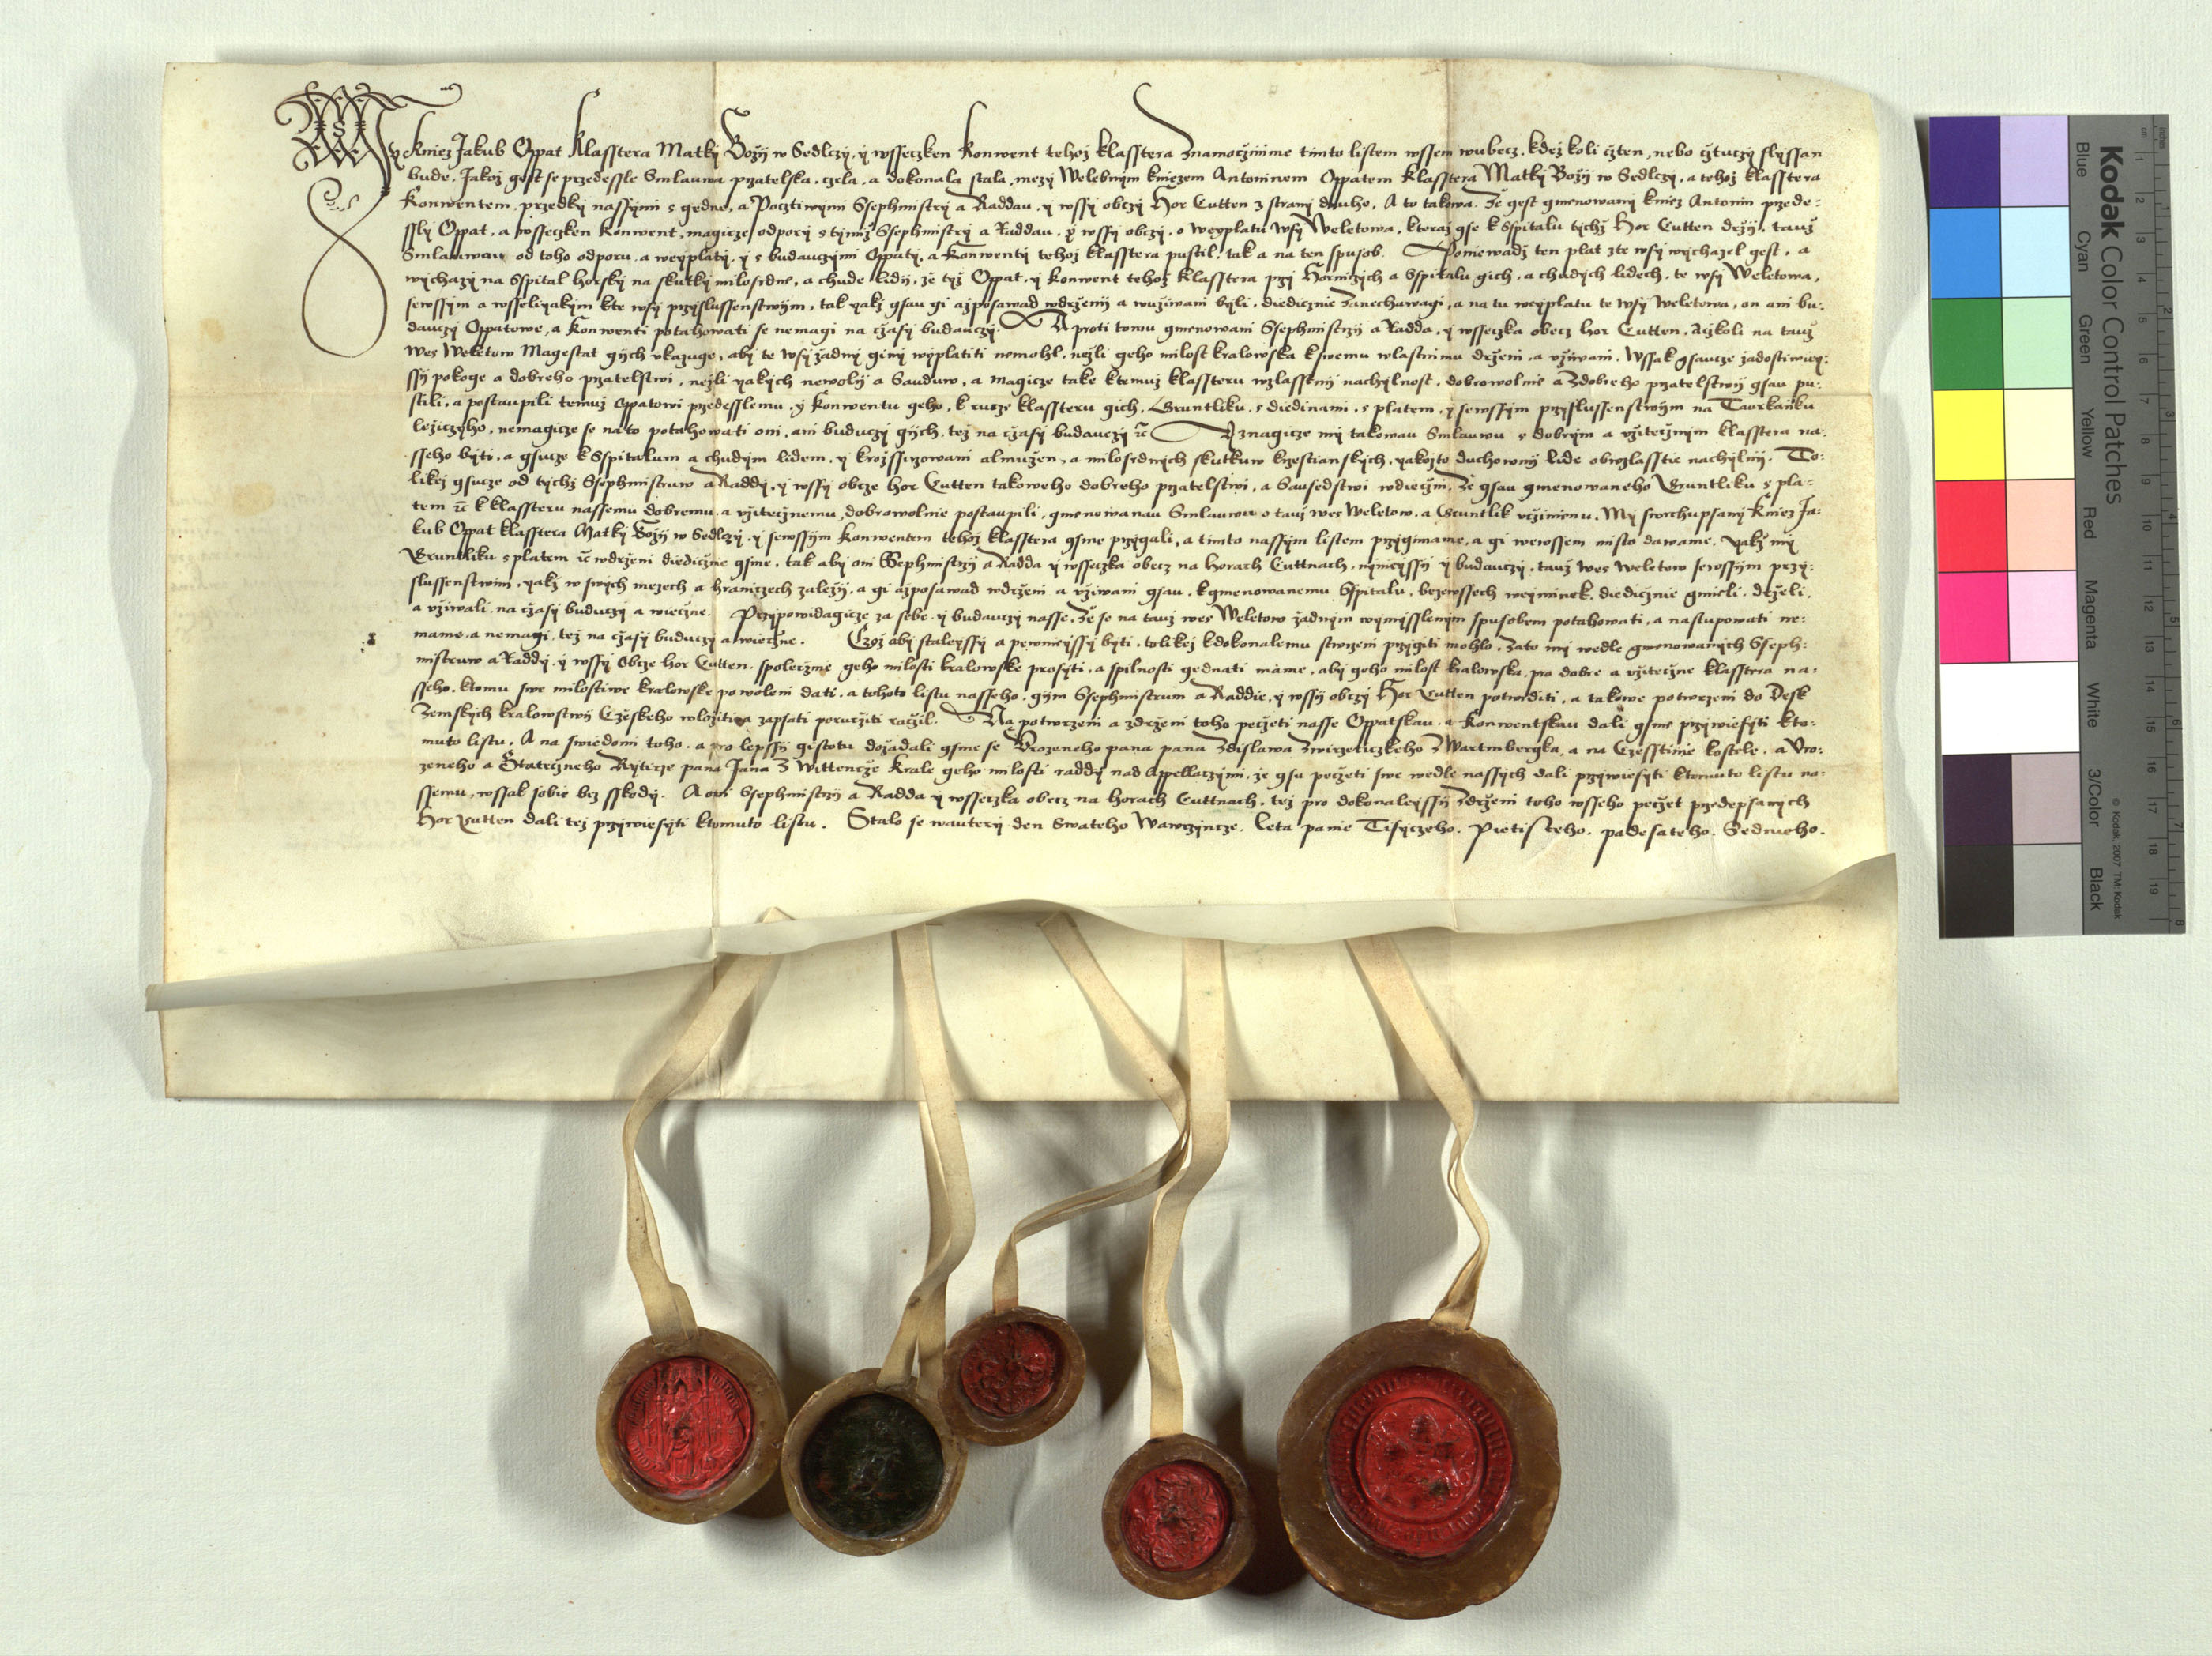 My Kniez Jakub Oppat Klasstera Matky Božij w Sedlczy, y wsseczken Konwent tehož klasstera Znamo cžinime timto listem wssem wubecz, kdež koli cžten, nebo cžtuczy slyssan
bude. Jakož gest se przedessle Smlauwa przatelska, czela, a dokonala stala, mezy Welebnym kniezem Antoninem Oppatem Klasstera Matky Božy w Sedlczy, a tehož klasstera
Konwentem, przedky nassymi s gedne, a Pocztiwymi Ssephmistry a Raddau, y wssy obczy Hor Cutten z strany druhe, A to takowa. Že gest gmenowany kniez Antonin przede:
ssly Oppat, a wsseczken Konwent, magicze odpory s tymiž Ssephmistry a Raddau, y wssy obczy, o weyplatu wsy Weletowa, kteraž gse k Sspitalu tychž Hor Cutten držy, tauž
Smlauwau od toho odporu a weyplaty, y s budauczymi Oppaty, a Konwenty tehož klasstera pustil, tak a na ten spusob. Poniewadž ten plat zte wsy wychazel gest, a
wychazy na Sspital horsky na skutky milosrdne, a chude lidy, že tyž Oppat, y Konwent tehož Klasstera przy Hornicych a Sspitalu gich, a chudych lidech, te wsy Weletowa,
sewssym a wsseliyakym kte wsy przyslussenstwym, tak yakž gsau gi ažposawad wdrženi a wužiwani byli, diedicznie Zanechawagi, a na tu weyplatu te wsy Weletowa, on ani bu:
dauczy Oppatowe, a Konwenti potahowati se nemagi na cžasy budauczy. A proti tomu gmenowani Ssephmistrzy a Radda, y wsseczka obecz hor Cutten, Acžkoli na tauž
wes Weletow Magestat gych vkazuge, aby te wsy žadny giny wyplatiti nemohl, nežli geho milost kralowska k swemu wlastnimu drženi, a vžiwani. Wssak gsaucze žadostiwiey:
ssy pokoge a dobreho przatelstwi, nežli yakych newoly a Sauduw, a magicze take ktemuž klassteru wzlasstny nachylnost, dobrowolnie a Zdobreho przatelstwy gsau pu:
stili, a postaupili temuž Oppatowi przedesslemu, y Konwentu geho, k rucze klassteru gich, Gruntliku, s diedinami, s platem, y sewssym przyslussenstwym na Taurkaňku
ležiczyho, nemagicze se na to potahowati oni, ani buduczy gych, tež na cžasy budauczy etc. A znagicze my takowau Smlauwu s dobrym a vžitecžnym klasstera na:
sseho byti, a gsucze k Sspitalum a chudym lidem, y krozssirzowani almužen, a milosrdnych skutkuw krzestianskych, yakožto duchowny lide obwzlasstie nachylny. To:
likež gsucze od tychž Ssephmistruw a Raddy, y wssy obcze hor Cutten takoweho dobreho przatelstwi, a Sausedstwi wdiecžni, Že gsau gmenowaneho Gruntliku s pla:
tem etc. k klassteru nassemu dobremu, a vžitecžnemu, dobrowolnie postaupili, gmenowanau Smlauwu o tauž wes Weletow, a Gruntlik vcžinienu. My swrchupsany Kniez Ja:
kub Oppat klasstera Matky Božy w Sedlczy, y sewssym Konwentem tehož klasstera gsme przygali, a timto nassym listem przygimame, a gi wewssem misto dawame. Yakž my
Gruntliku s platem etc. wdrženi diedicžne gsme, tak aby oni Ssephmistrzy a Radda y wsseczka obecz na horach Cuttnach, nynieyssy y budauczy, tauž wes Weletow sewssym przy:
slussenstwim, yakž w swych mezech a hraniczech zaležy, a gi ažposawad wdrženi a vžiwani gsau, k gmenowanemu Sspitalu, bezewssech weyminek, diedicžnie gmieli, drželi,
a vžiwali, na cžasy buduczy a wiecžne. Przypowidagicze za sebe, y budauczy nasse, že se na tauž wes Weletow žadnym wymysslenym spusobem potahowati, a nastupowati ne:
mame, a nemagi, tež na cžasy buduczy a wiecžne. Czož aby staleyssy a pewnieyssy byti, tolikež k dokonalemu stwrzeni przygiti mohlo, Zato my wedle gmenowanych Sseph:
mistruw a Raddy, y wssy obcze hor Cutten, spolecžnie geho milosti kralowske prosyti, a spilnosti gednati mame, aby geho milost kralowska, pro dobre a vžitecžne klasstera na:
sseho, ktomu swe milostiwe kralowske powoleni dati, a tohoto listu nasseho, gym Ssephmistrum a Raddie, y wssy obczy Hor Cutten potwrditi, a takowe potwrzeni do Desk
Zemskych kralowstwy Cžeskeho wložiti a zapsati porucžiti racžil. Na potwrzeni a zdrženi toho pecžeti nasse Oppatskau, a Konwentskau dali gsme przywiesyti kto:
muto listu. A na swiedomi toho, a pro lepssy gistotu dožadali gsme se Vrozeneho pana pana Zdislawa Zwirzeticzkeho Z Wartmbergka, a na Cžesstinie kostele, a Vro:
zeneho a Statecžneho Rytirze pana Jana Z Wittencže Krale geho milosti raddy nad Appellaczymi, že gsu pecžeti swe wedle nassych dali przywiesyti ktomuto listu na:
ssemu, wssak sobie bez sskody. A oni Ssephmistrzy a Radda y wsseczka obecz na horach Cuttnach, tež pro dokonaleyssy Zdrženi toho wsseho pecžet przedepsanych
Hor Cutten dali tež przywiesyti ktomuto listu. Stalo se wautery den Swateho Wawrzyncze, Leta panie Tisyczeho, Pietisteho, padesateho, Sedmeho.
Kodak Color Control Patches
Blue Cyan Green Yellow Red Magenta White 3/Color Black
© Kodak, 2007 TM: Kodak